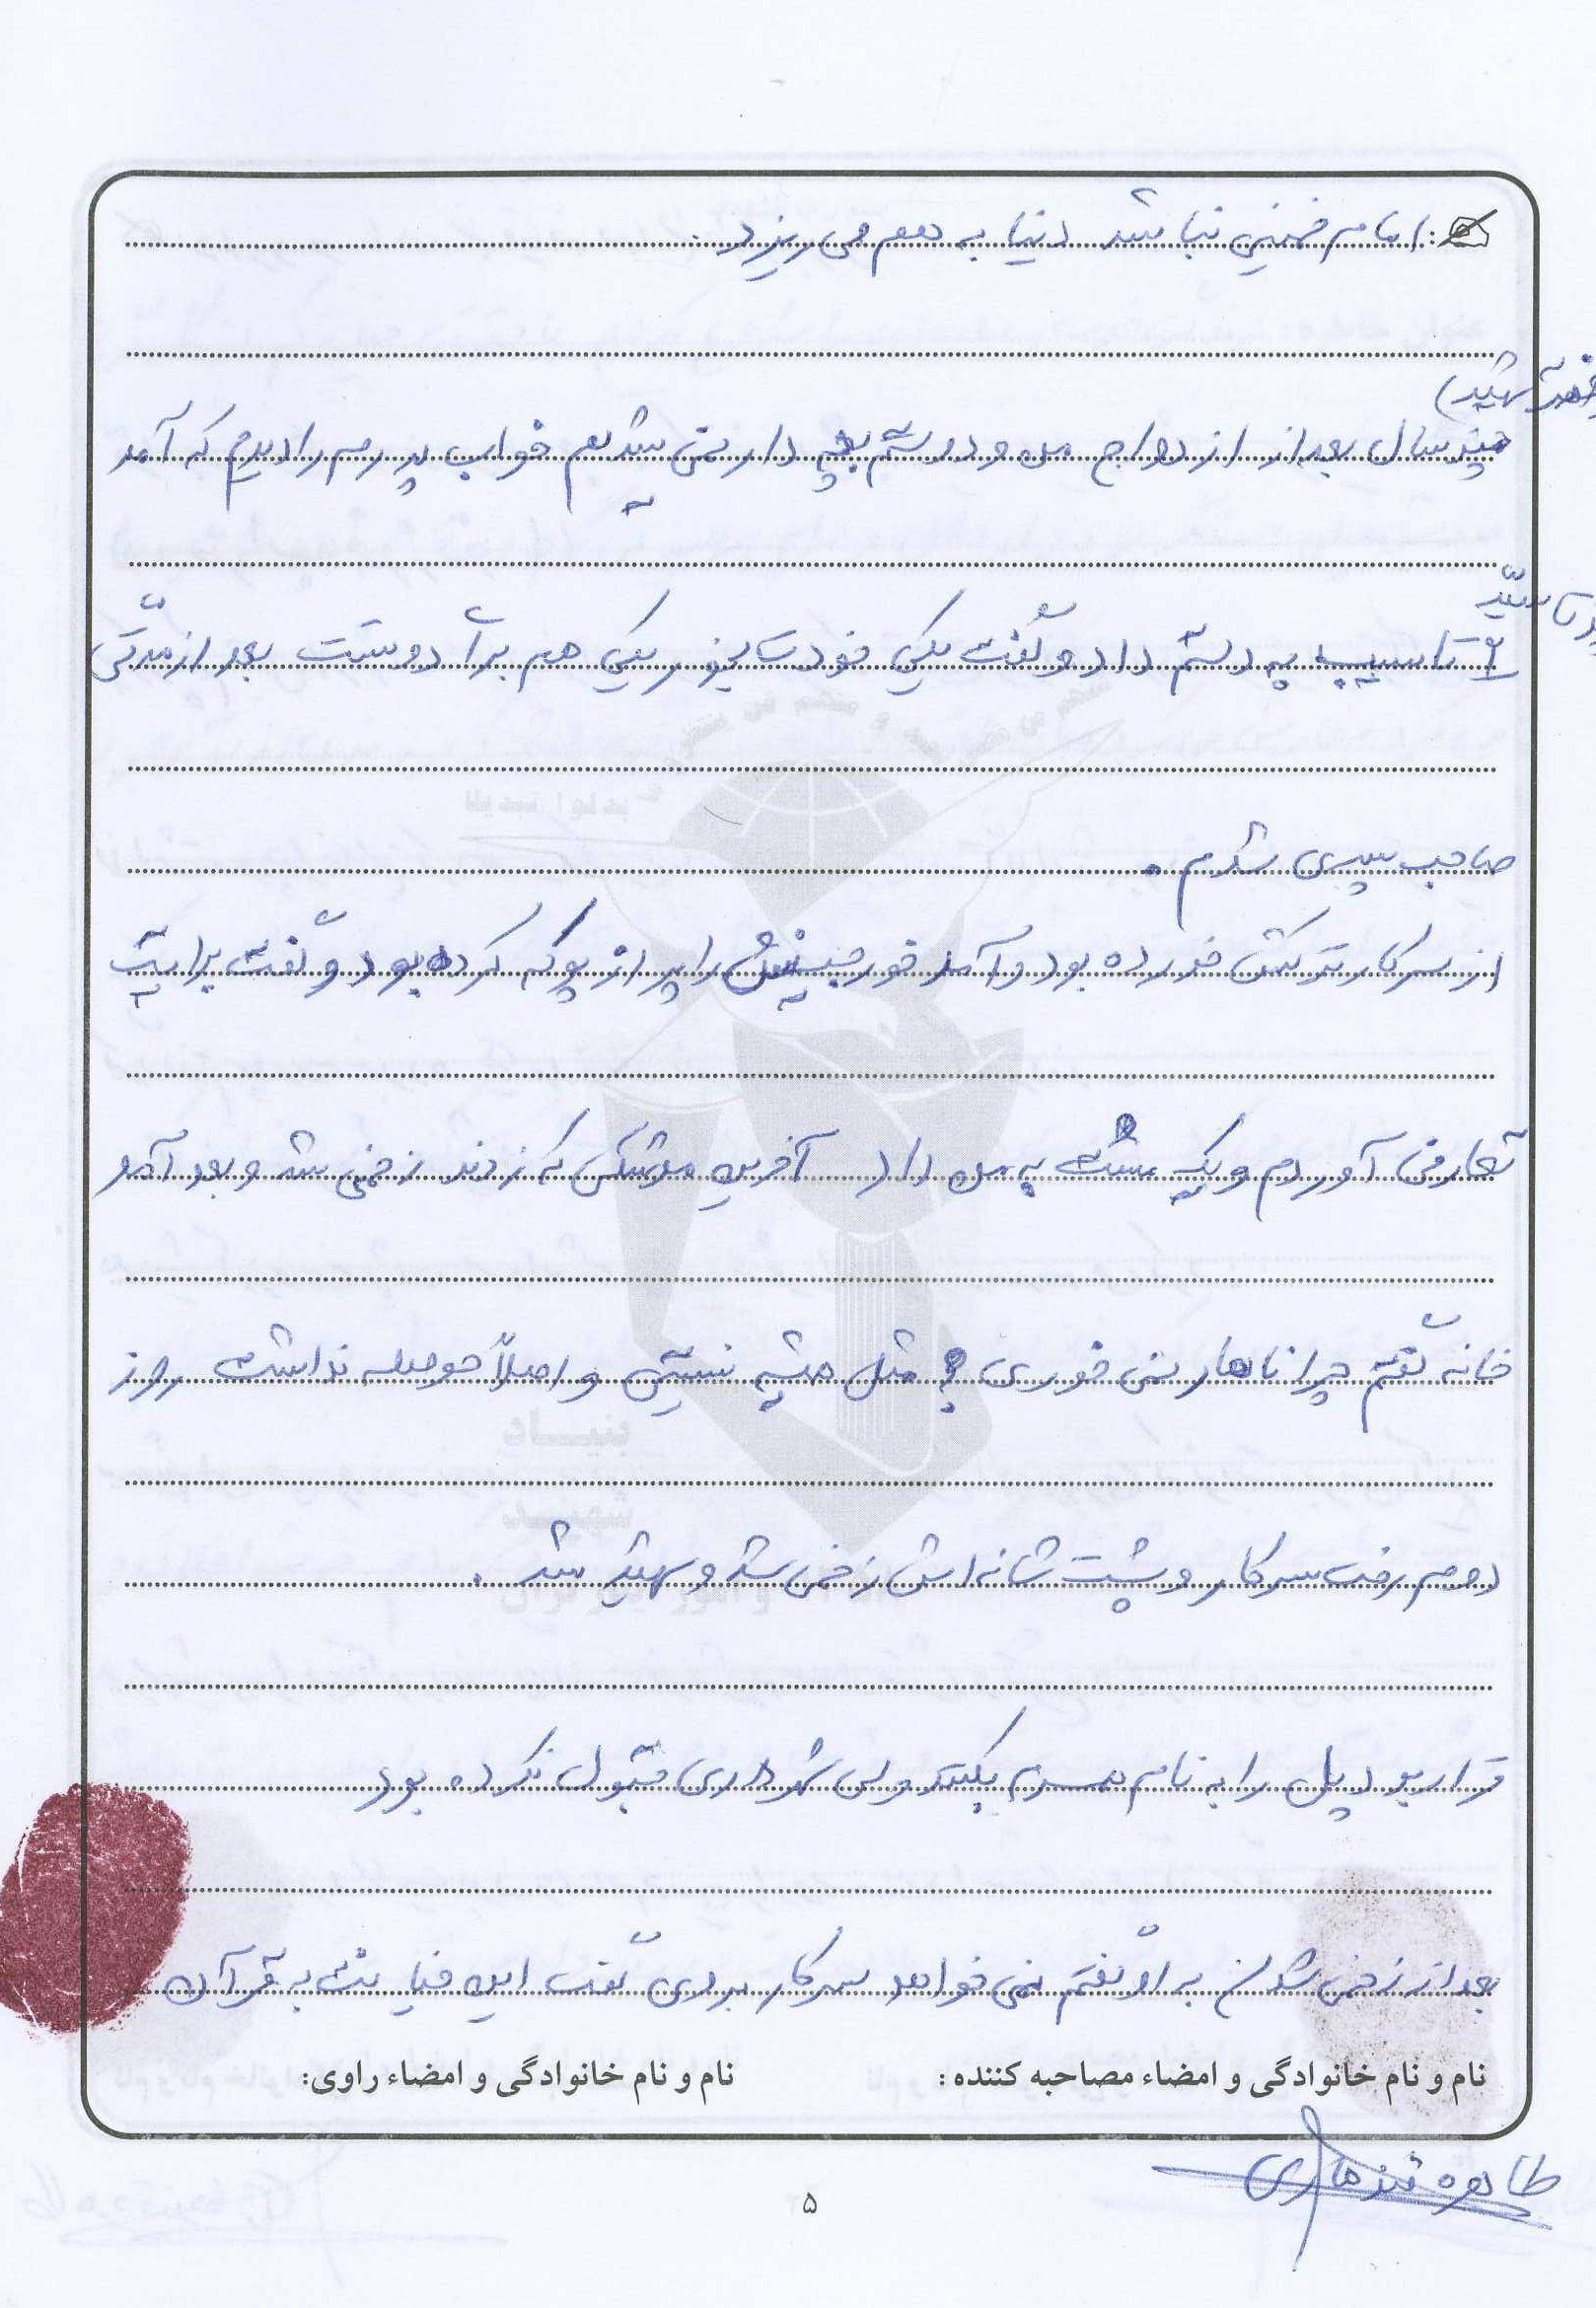 امام خمینی نباشد دنیا به هم می ریزد.
شهید)
چند سال بعد از ازدواج من و دوستم بچه دار نمی شدیم خواب پدرم را دیدم که آمد
۲ تا سیب به دستم داد و گفت یکی خودت بخور یکی هم برا دوستت بعد از مدتی
صاحب پسری شدم.
از سر کار ترکش خورده بود و آمد خورجینش را پر از پوکه کرده بود و گفت برایت
تعارفی آوردم و یک مشت به من داد آخرین موشکی که زدند زخمی شد و بعد آمد
خانه گفتم چرا ناهار نمی خوری؟ مثل همیشه نیستی و اصلاً حوصله نداشت روز
دوم رفت سر کار و پشت شانه اش زخمی شد و شهید شد.
قرار بود پل را به نام پدرم بکنند ولی شهرداری قبول نکرده بود
بعد از زخمی شدن به او گفتم نمی خواهد سر کار بروی گفت این خیانت به قرآن
نام و نام خانوادگی و امضاء مصاحبه کننده: نام و نام خانوادگی و امضاء راوی:
طاهره قندهاری
۵
بنیاد
شهید